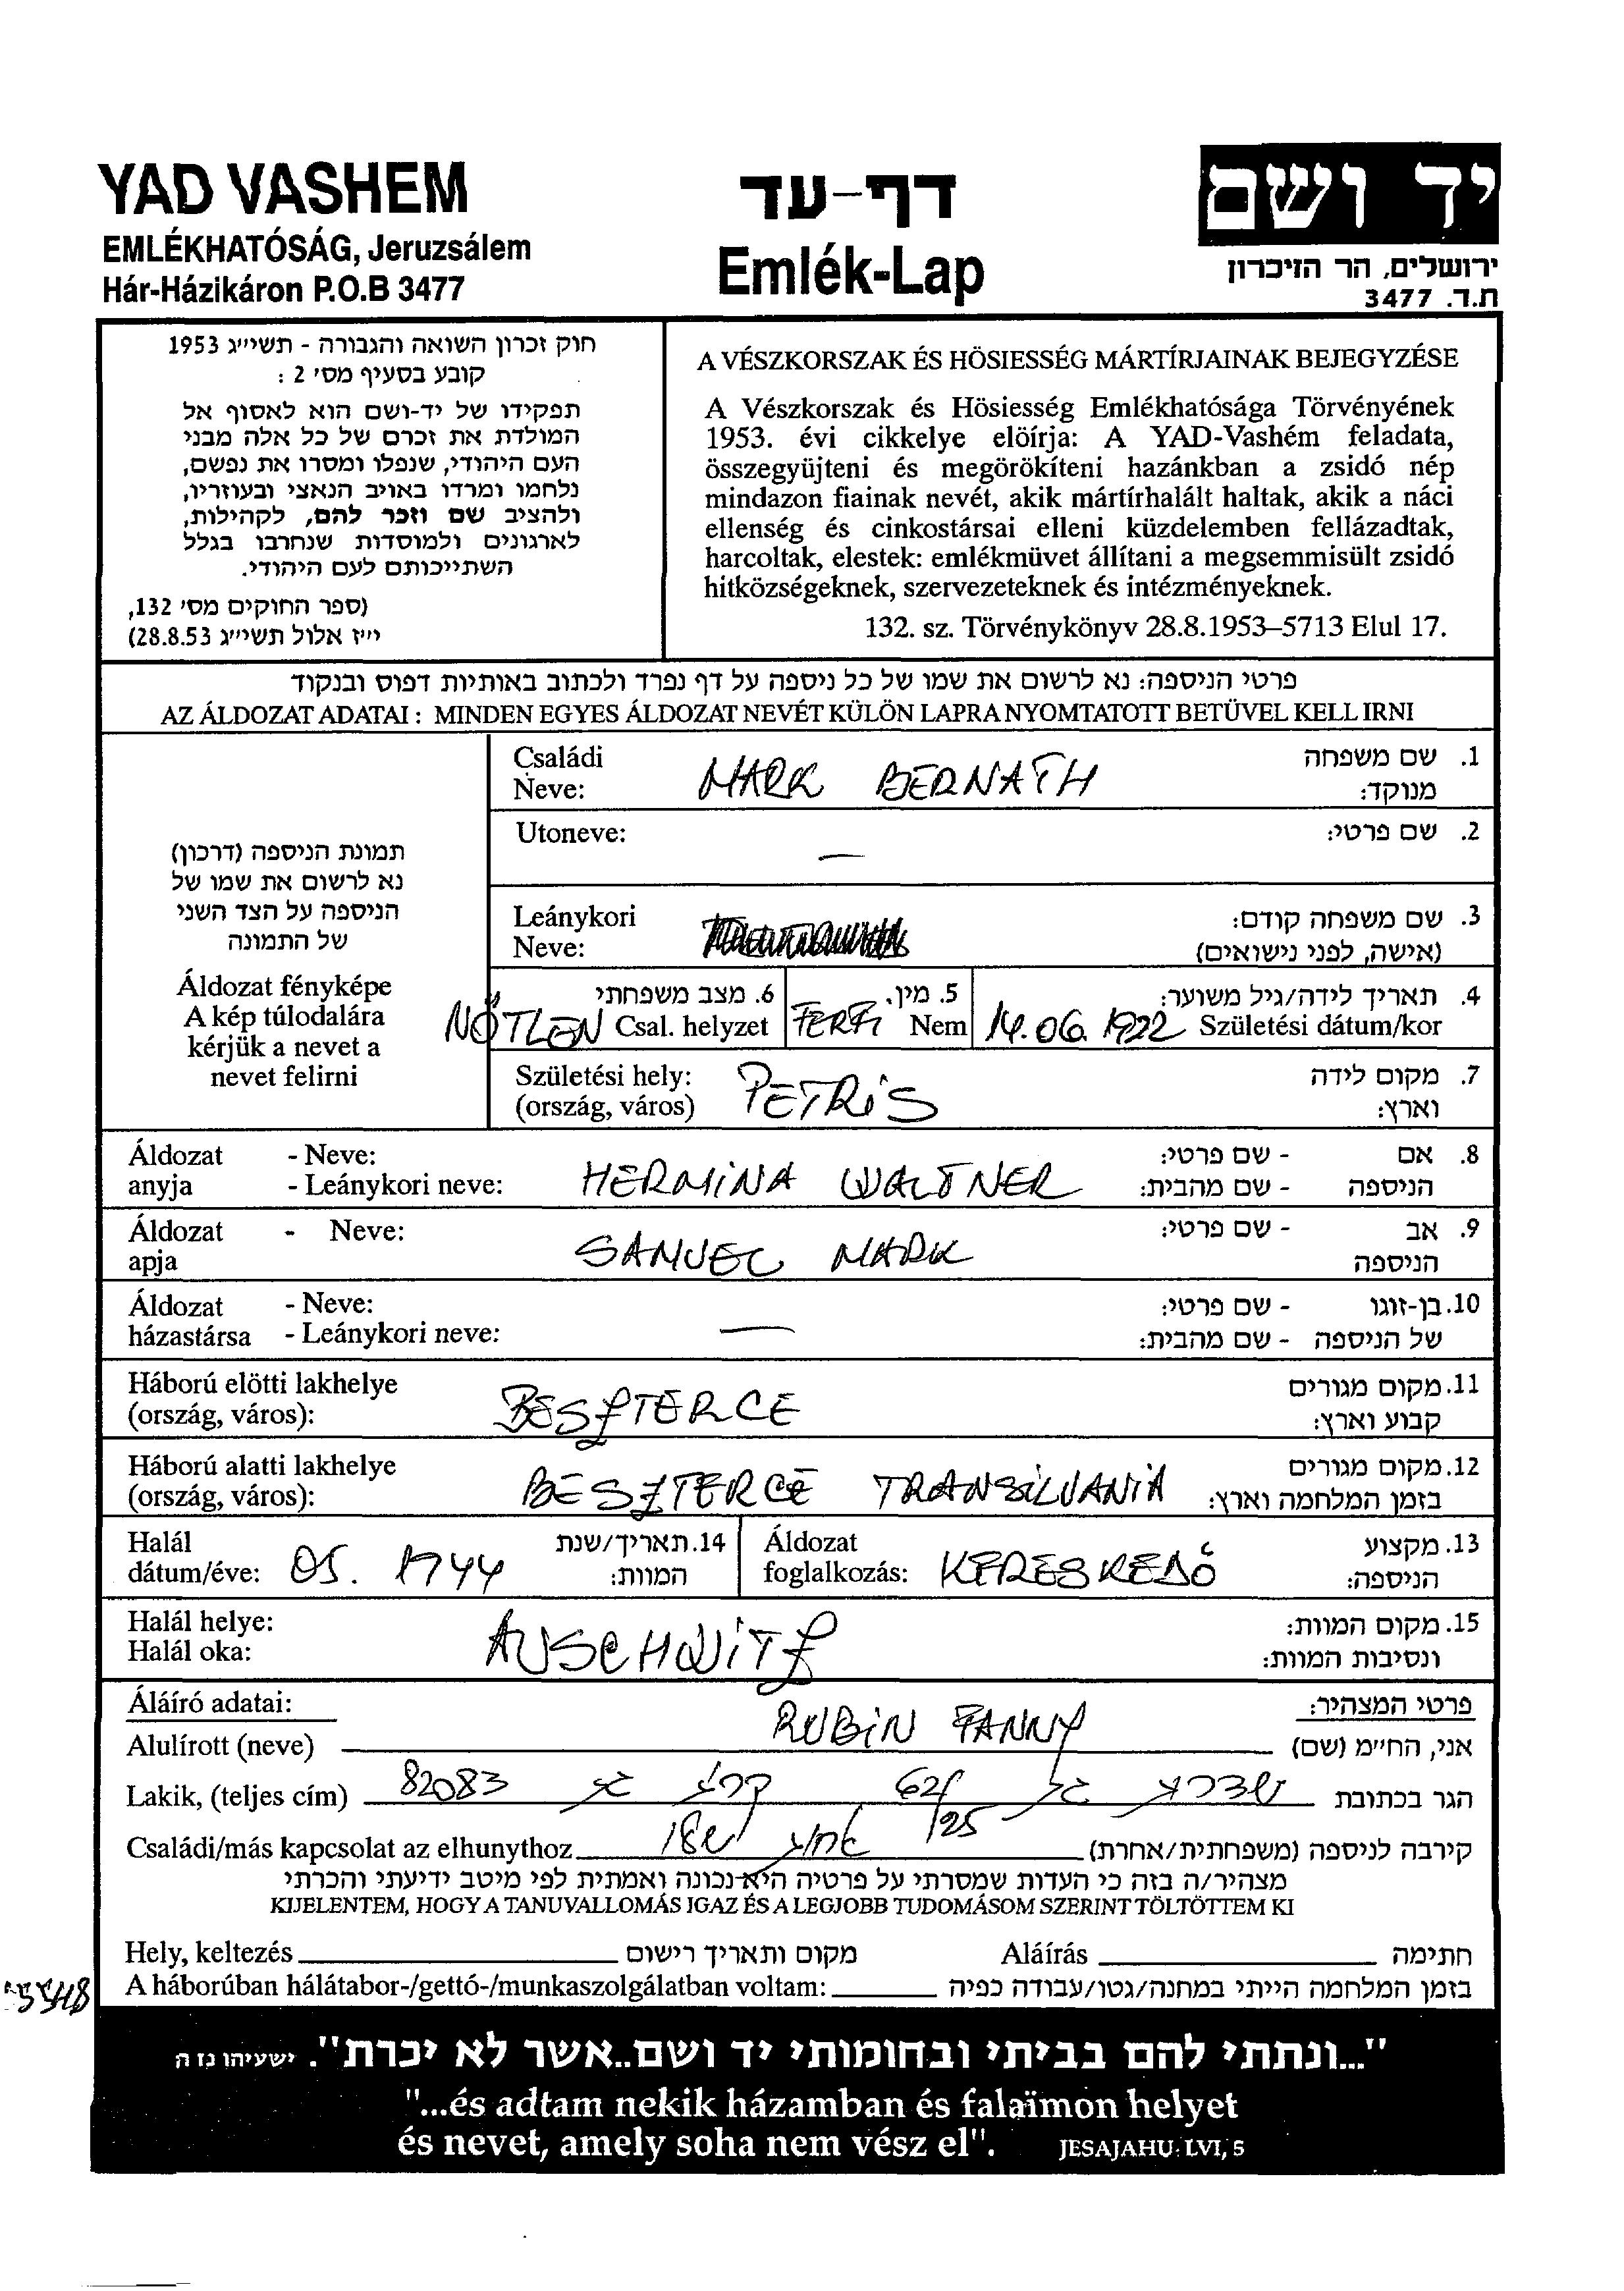 YAD VASHEM
EMLÉKHATÓSÁG, Jeruzsálem
Hár-Házikáron P.O.B 3477
דף-עד
Emlék-Lap
יד ושם
ירושלים, הר הזיכרון
ת.ד. 3477
חוק זכרון השואה והגבורה - תשי״ג 1953
קובע בסעיף מס' 2 :
תפקידו של יד-ושם הוא לאסוף אל
המולדת את זכרם של כל אלה מבני
העם היהודי, שנפלו ומסרו את נפשם,
נלחמו ומרדו באויב הנאצי ובעוזריו,
ולהציב שם וזכר להם, לקהילות,
לארגונים ולמוסדות שנחרבו בגלל
השתייכותם לעם היהודי.
(ספר החוקים מס' 132,
י״ז אלול תשי״ג 28.8.53)
A VÉSZKORSZAK ÉS HÖSIESSÉG MÁRTÍRJAINAK BEJEGYZÉSE
A Vészkorszak és Hösiesség Emlékhatósága Törvényének
1953. évi cikkelye elöírja: A YAD-Vashém feladata,
összegyüjteni és megörökíteni hazánkban a zsidó nép
mindazon fiainak nevét, akik mártírhalált haltak, akik a náci
ellenség és cinkostársai elleni küzdelemben fellázadtak,
harcoltak, elestek: emlékmüvet állítani a megsemmisült zsidó
hitközségeknek, szervezeteknek és intézményeknek.
132. sz. Törvénykönyv 28.8.1953–5713 Elul 17.
פרטי הניספה: נא לרשום את שמו של כל ניספה על דף נפרד ולכתוב באותיות דפוס ובנקוד
AZ ÁLDOZAT ADATAI : MINDEN EGYES ÁLDOZAT NEVÉT KÜLÖN LAPRA NYOMTATOTT BETÜVEL KELL IRNI
תמונת הניספה (דרכון)
נא לרשום את שמו של
הניספה על הצד השני
של התמונה
Áldozat fényképe
A kép túlodalára
kérjük a nevet a
nevet felirni
Családi MARK BERNATH 1. שם משפחה
Neve: מנוקד:
Utoneve: — 2. שם פרטי:
Leánykori 3. שם משפחה קודם:
Neve: (אישה, לפני נישואים)
6. מצב משפחתי 5. מין. 4. תאריך לידה/גיל משוער:
NŐTLEN Csal. helyzet FERFi Nem 14. 06. 1922 Születési dátum/kor
Születési hely: PETRiS 7. מקום לידה
(ország, város) וארץ:
Áldozat - Neve: - שם פרטי: 8. אם
anyja - Leánykori neve: HERMiNA WALTNER - שם מהבית: הניספה
Áldozat - Neve: - שם פרטי: 9. אב
apja SAMUEL MARK הניספה
Áldozat - Neve: - שם פרטי: 10. בן-זוגו
házastársa - Leánykori neve: — - שם מהבית: של הניספה
Háború elötti lakhelye 11. מקום מגורים
(ország, város): BESZTERCE קבוע וארץ:
Háború alatti lakhelye 12. מקום מגורים
(ország, város): BESZTERCE TRANSiLVANiA בזמן המלחמה וארץ:
Halál 14. תאריך/שנת Áldozat 13. מקצוע
dátum/éve: 05. 1944 המוות: foglalkozás: KERESKEDŐ הניספה:
Halál helye: 15. מקום המוות:
Halál oka: AUSCHWiTZ ונסיבות המוות:
Áláíró adatai: פרטי המצהיר:
Alulírott (neve) RUBiN FANNY אני, החי״מ (שם)
Lakik, (teljes cím) 82083 קרית גת 62/25 הגר בכתובת
Családi/más kapcsolat az elhunythoz קירבה לניספה (משפחתית/אחרת)
מצהיר/ה בזה כי העדות שמסרתי על פרטיה היא נכונה ואמתית לפי מיטב ידיעתי והכרתי
KIJELENTEM, HOGY A TANUVALLOMÁS IGAZ ÉS A LEGJOBB TUDOMÁSOM SZERINT TÖLTÖTTEM KI
Hely, keltezés מקום ותאריך רישום Aláírás חתימה
A háborúban hálátabor-/gettó-/munkaszolgálatban voltam: בזמן המלחמה הייתי במחנה/גטו/עבודה כפיה
"...ונתתי להם בביתי ובחומותי יד ושם..אשר לא יכרת". ישעיהו נז ה
"...és adtam nekik házamban és falaïmon helyet
és nevet, amely soha nem vész el". JESAJAHU: LVI, 5